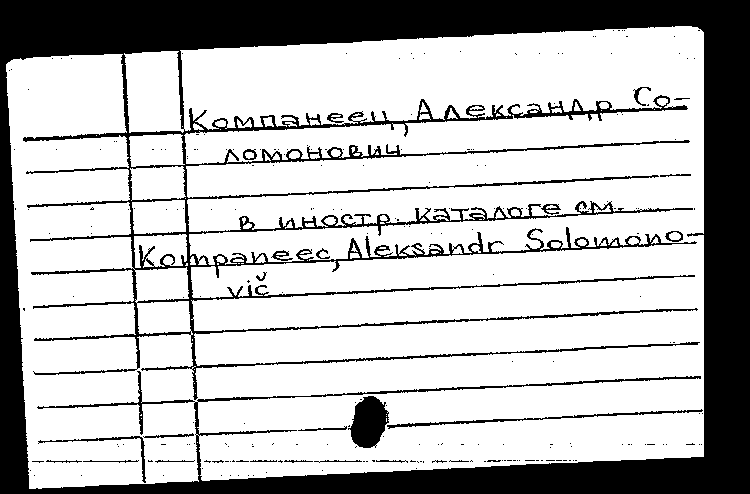 Компанеец, Александр Со-
ломонович
в иностр. каталоге см.
Kompaneec, Aleksandr Solomono-
vič